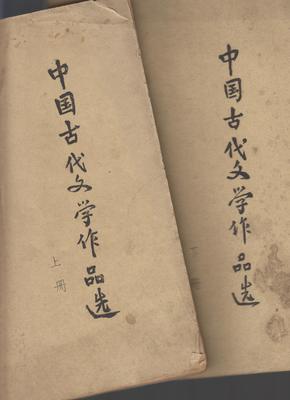 中国古代文学作品选
上册
中国古代文学作品选